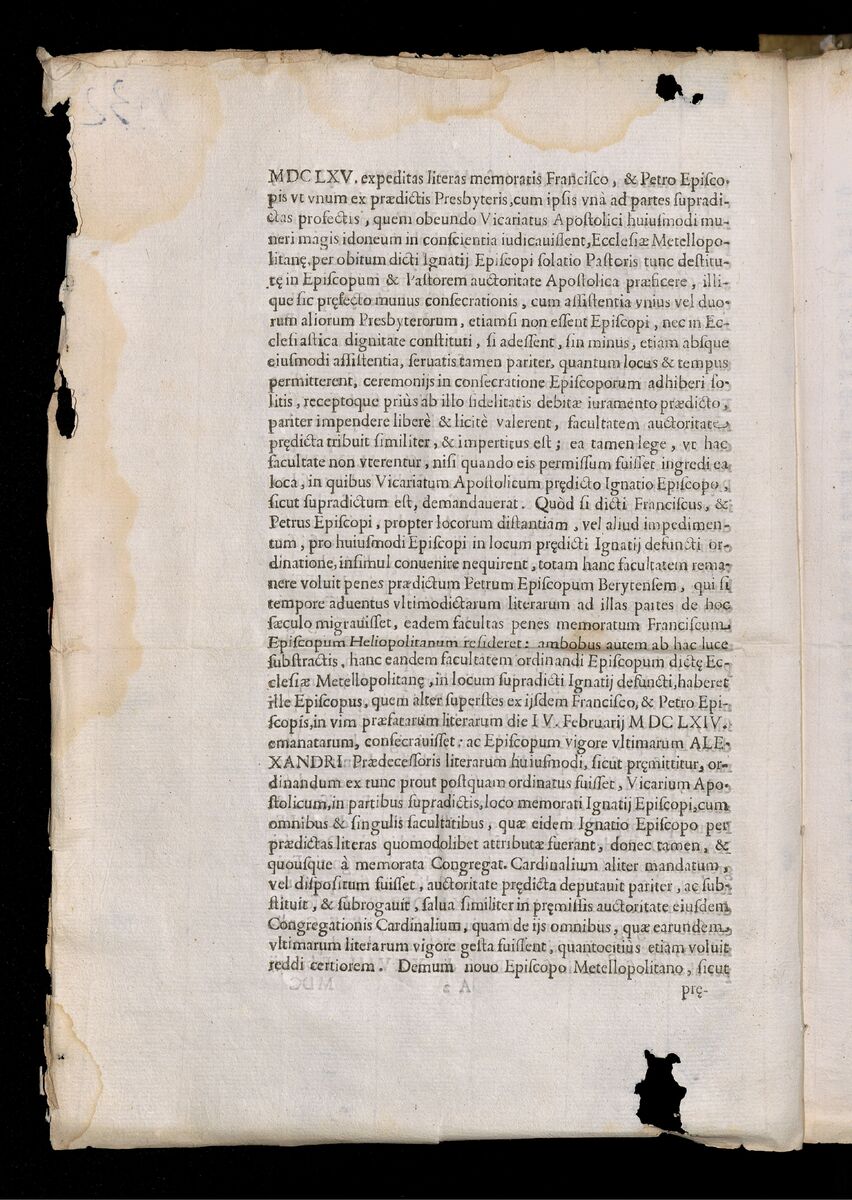 MDCLXV. expeditas literas memoratis Franciſco, & Petro Epiſco-
pis vt vnum ex prædictis Presbyteris, cum ipſis vnà ad partes ſupradi-
ctas profectis, quem obeundo Vicariatus Apoſtolici huiuſmodi mu-
neri magis idoneum in conſcientia iudicauiſſent, Eccleſiæ Metellopo-
litanę, per obitum dicti Ignatij Epiſcopi ſolatio Paſtoris tunc deſtitu-
tę in Epiſcopum & Paſtorem auctoritate Apoſtolica præficere, illi-
que ſic pręfecto munus conſecrationis, cum aſſiſtentia vnius vel duo-
rum aliorum Presbyterorum, etiamſi non eſſent Epiſcopi, nec in Ec-
cleſiaſtica dignitate conſtituti, ſi adeſſent, ſin minus, etiam abſque
eiuſmodi aſſiſtentia, ſeruatis tamen pariter, quantum locus & tempus
permitterent, ceremonijs in conſecratione Epiſcoporum adhiberi ſo-
litis, receptoque priùs ab illo fidelitatis debitæ iuramento prædicto,
pariter impendere liberè & licitè valerent, facultatem auctoritate
prędicta tribuit ſimiliter, & impertitus eſt; ea tamen lege, vt hac
facultate non vterentur, niſi quando eis permiſſum fuiſſet ingredi ea
loca, in quibus Vicariatum Apoſtolicum prędicto Ignatio Epiſcopo,
ſicut ſupradictum eſt, demandauerat. Quòd ſi dicti Franciſcus, &
Petrus Epiſcopi, propter locorum diſtantiam, vel aliud impedimen-
tum, pro huiuſmodi Epiſcopi in locum prędicti Ignatij defuncti or-
dinatione, inſimul conuenire nequirent, totam hanc facultatem rema-
nere voluit penes prædictum Petrum Epiſcopum Berytenſem, qui ſi
tempore aduentus vltimodictarum literarum ad illas partes de hoc
ſæculo migrauiſſet, eadem facultas penes memoratum Franciſcum
Epiſcopum Heliopolitanum reſideret: ambobus autem ab hac luce
ſubſtractis, hanc eandem facultatem ordinandi Epiſcopum dictę Ec-
cleſiæ Metellopolitanę, in locum ſupradicti Ignatij defuncti, haberet
ille Epiſcopus, quem alter ſuperſtes ex ijſdem Franciſco, & Petro Epi-
ſcopis, in vim præfatarum literarum die IV. Februarij MDCLXIV.
emanatarum, conſecrauiſſet: ac Epiſcopum vigore vltimarum ALE-
XANDRI Prædeceſſoris literarum huiuſmodi, ſicut pręmittitur, or-
dinandum ex tunc prout poſtquam ordinatus fuiſſet, Vicarium Apo-
ſtolicum, in partibus ſupradictis, loco memorati Ignatij Epiſcopi, cum
omnibus & ſingulis facultatibus, quæ eidem Ignatio Epiſcopo per
prædictas literas quomodolibet attributæ fuerant, donec tamen, &
quouſque à memorata Congregat. Cardinalium aliter mandatum,
vel diſpoſitum fuiſſet, auctoritate prędicta deputauit pariter, ac ſub-
ſtituit, & ſubrogauit, ſalua ſimiliter in pręmiſſis auctoritate eiuſdem
Congregationis Cardinalium, quam de ijs omnibus, quæ earundem
vltimarum literarum vigore geſta fuiſſent, quantocitiùs etiam voluit
reddi certiorem. Demum nouo Epiſcopo Metellopolitano, ſicut
prę-